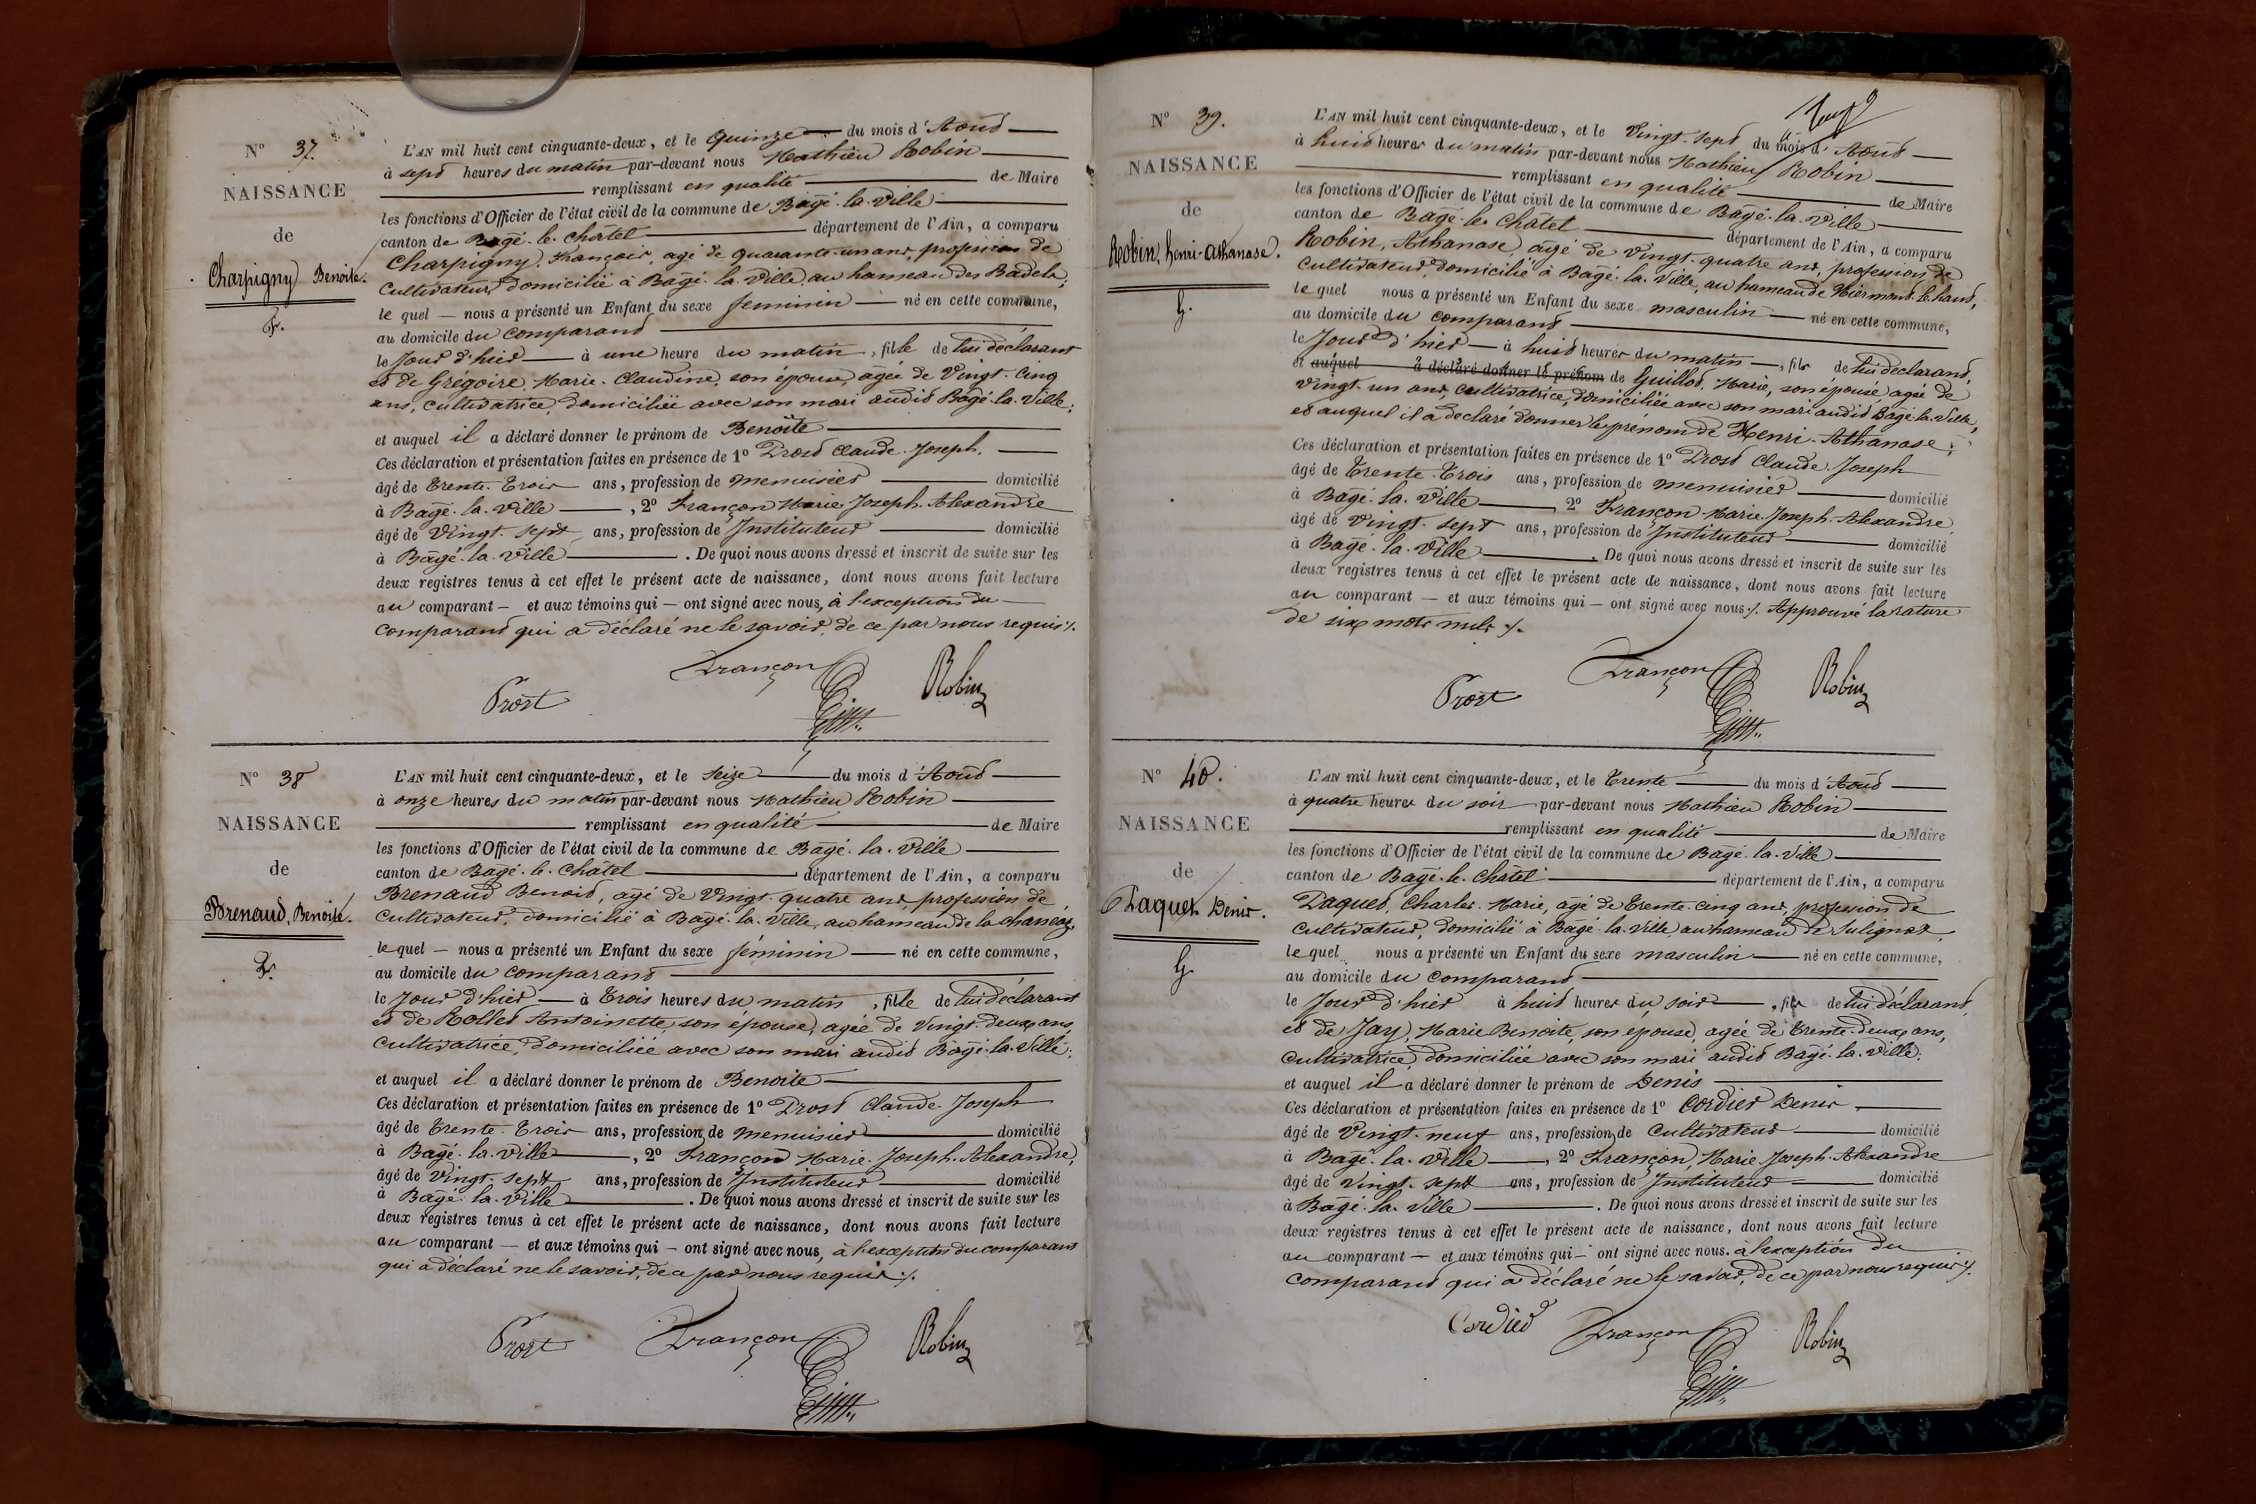 N° 37.
NAISSANCE
de
Charpigny Benoite.
F.
L'AN mil huit cent cinquante-deux, et le Quinze du mois d'Août
à sept heures du matin par-devant nous Mathieu Robin
remplissant en qualité de Maire
les fonctions d'Officier de l'état civil de la commune de Bagé-la-Ville
canton de Bagé-le-Châtel département de l'Ain, a comparu
Charpigny, François, agé de quarante-un ans, profession de
Cultivateur, domicilié à Bagé-la-Ville, au hameau des Badels;
le quel — nous a présenté un Enfant du sexe feminin — né en cette commune,
au domicile du comparant
le Jour d'hier — à une heure du matin, fille de lui déclarant
et de Grégoire, Marie-Claudine, son épouse, agée de Vingt-Cinq
ans, cultivatrice, domiciliée avec son mari audit Bagé-la-Ville;
et auquel il a déclaré donner le prénom de Benoîte
Ces déclaration et présentation faites en présence de 1° Prost Claude-Joseph,
âgé de Trente-Trois ans, profession de menuisier domicilié
à Bagé-la-Ville, 2° Françon Marie-Joseph-Alexandre
âgé de Vingt-sept ans, profession de Instituteur domicilié
à Bagé-la-Ville. De quoi nous avons dressé et inscrit de suite sur les
deux registres tenus à cet effet le présent acte de naissance, dont nous avons fait lecture
au comparant — et aux témoins qui — ont signé avec nous, à l'exception du
comparant qui a déclaré ne le savoir, de ce par nous requis ./.
Prost Françon Robin
N° 38
NAISSANCE
de
Brenaud, Benoite.
F.
L'AN mil huit cent cinquante-deux, et le Seize du mois d'Août
à onze heures du matin par-devant nous Mathieu Robin
remplissant en qualité de Maire
les fonctions d'Officier de l'état civil de la commune de Bagé-la-Ville
canton de Bagé-le-Châtel département de l'Ain, a comparu
Brenaud Benoit, agé de Vingt-quatre ans, profession de
Cultivateur, domicilié à Bagé-la-Ville, au hameau de la
le quel — nous a présenté un Enfant du sexe féminin — né en cette commune,
au domicile du comparant
le Jour d'hier — à Trois heures du matin, fille de lui déclarant
et de Rollet Antoinette, son épouse, agée de Vingt-deux ans,
Cultivatrice, domiciliée avec son mari audit Bagé-la-Ville;
et auquel il a déclaré donner le prénom de Benoite
Ces déclaration et présentation faites en présence de 1° Prost Claude-Joseph
âgé de Trente-Trois ans, profession de menuisier domicilié
à Bagé-la-Ville, 2° Françon Marie-Joseph-Alexandre,
âgé de Vingt-sept ans, profession de Instituteur domicilié
à Bagé-la-Ville. De quoi nous avons dressé et inscrit de suite sur les
deux registres tenus à cet effet le présent acte de naissance, dont nous avons fait lecture
au comparant — et aux témoins qui — ont signé avec nous, à l'exception du comparant
qui a déclaré ne le savoir, de ce par nous requis ./.
Prost Françon Robin
N° 39.
NAISSANCE
de
Robin, henri-Athanase.
G.
L'AN mil huit cent cinquante-deux, et le Vingt-Sept du mois d'Août
à huit heures du matin par-devant nous Mathieu Robin
remplissant en qualité de Maire
les fonctions d'Officier de l'état civil de la commune de Bagé-la-Ville
canton de Bagé-le-Châtel département de l'Ain, a comparu
Robin, Athanase, agé de Vingt-quatre ans, profession de
Cultivateur, domicilié à Bagé-la-Ville, au hameau de
le quel nous a présenté un Enfant du sexe masculin — né en cette commune,
au domicile du comparant
le Jour d'hier — à huit heures du matin, fils de lui déclarant,
et auquel a déclaré donner le prénom de Guillot, Marie, son épouse, agée de
Vingt-un ans, cultivatrice, domiciliée avec son mari audit Bagé-la-Ville,
et auquel il a déclaré donner le prénom de Henri-Athanase;
Ces déclaration et présentation faites en présence de 1° Prost Claude-Joseph
âgé de Trente-Trois ans, profession de menuisier domicilié
à Bagé-la-Ville 2° Françon Marie-Joseph-Alexandre
âgé de Vingt-sept ans, profession de Instituteur domicilié
à Bagé-la-Ville. De quoi nous avons dressé et inscrit de suite sur les
deux registres tenus à cet effet le présent acte de naissance, dont nous avons fait lecture
au comparant — et aux témoins qui — ont signé avec nous ./. Approuvé la rature
de six mots nuls ./.
Prost Françon Robin
N° 40.
NAISSANCE
de
Paquet Denis.
G.
L'AN mil huit cent cinquante-deux, et le Trente du mois d'Août
à quatre heures du soir par-devant nous Mathieu Robin
remplissant en qualité de Maire
les fonctions d'Officier de l'état civil de la commune de Bagé-la-Ville
canton de Bagé-le-Châtel département de l'Ain, a comparu
Paquet, Charles-Marie, agé de Trente-cinq ans, profession de
Cultivateur, domicilié à Bagé-la-Ville, au hameau de Sulignat,
le quel nous a présenté un Enfant du sexe masculin — né en cette commune,
au domicile du comparant
le Jour d'hier à huit heures du soir, fils de lui déclarant,
et de Jay, Marie Benoite, son épouse, agée de Trente-deux ans,
Cultivatrice, domiciliée avec son mari audit Bagé-la-Ville;
et auquel il a déclaré donner le prénom de Denis
Ces déclaration et présentation faites en présence de 1° Cordier Denis
âgé de Vingt-neuf ans, profession de Cultivateur domicilié
à Bagé-la-Ville, 2° Françon, Marie-Joseph-Alexandre
âgé de Vingt-sept ans, profession de Instituteur domicilié
à Bagé-la-Ville. De quoi nous avons dressé et inscrit de suite sur les
deux registres tenus à cet effet le présent acte de naissance, dont nous avons fait lecture
au comparant — et aux témoins qui — ont signé avec nous. à l'exception du
Comparant qui a déclaré ne le savoir, de ce par nous requis ./.
Cordier Françon Robin